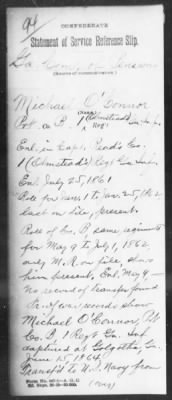 94
CONFEDERATE
Statement of Service Reference Slip.
Ga Com. of Pensions
(Source of communication.)
Michael O'Connor
(Name.)
Pvt. Co. B, 1 (Olmstead's) Ga. Inf.
Regt
Enl. in Capt. Read's Co.
1 (Olmstead's) Regt Ga Inf.
Enl. July 25, 1861
Roll for Nov. 1 to Jan. 25, 1862,
last on file, present.
Roll of Co. B, same regiment
for May 9 to July 1, 1862,
only M.R. on file, shows
him present, Enl. May 9—
No record of transfer found
Pr. of war records show
Michael O'Connor, Pvt
Co. B, 1 Regt Ga. Inf
captured at Golgotha, Ga.
June 15, 1864,
Transf'd to U.S. Navy from
(over)